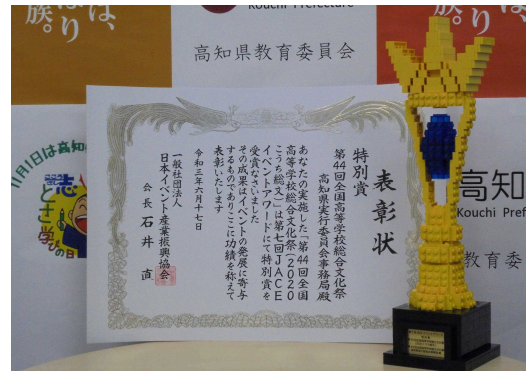 は、
ばり
族。
Kouchi Prefecture
高知県教育委員会
11月1日は高知
志
とさ学びの日
表彰状
特別賞
第44回全国高等学校総合文化祭
高知県実行委員会事務局殿
あなたの実施した「第44回全国
高等学校総合文化祭(2020
こうち総文)」は第七回JACE
イベントアワードにて特別賞を
受賞なさいました
その成果はイベントの発展に寄与
するものでありここに功績を称えて
表彰いたします
令和三年六月十七日
一般社団法人
日本イベント産業振興協会
会長 石井 直
高知
Kouchi Pref
教育委